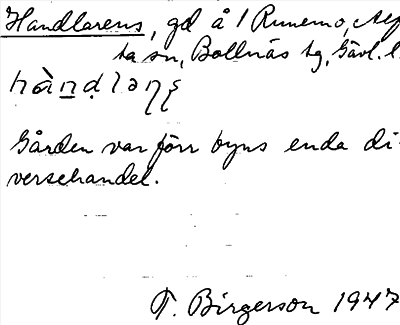 Handlarens, gd å 1 Runemo, Alf-
ta sn, Bollnäs tg, Gävl. l.
hàndlaṇs
Gården var förr byns enda di-
versehandel.
T. Birgerson 1947